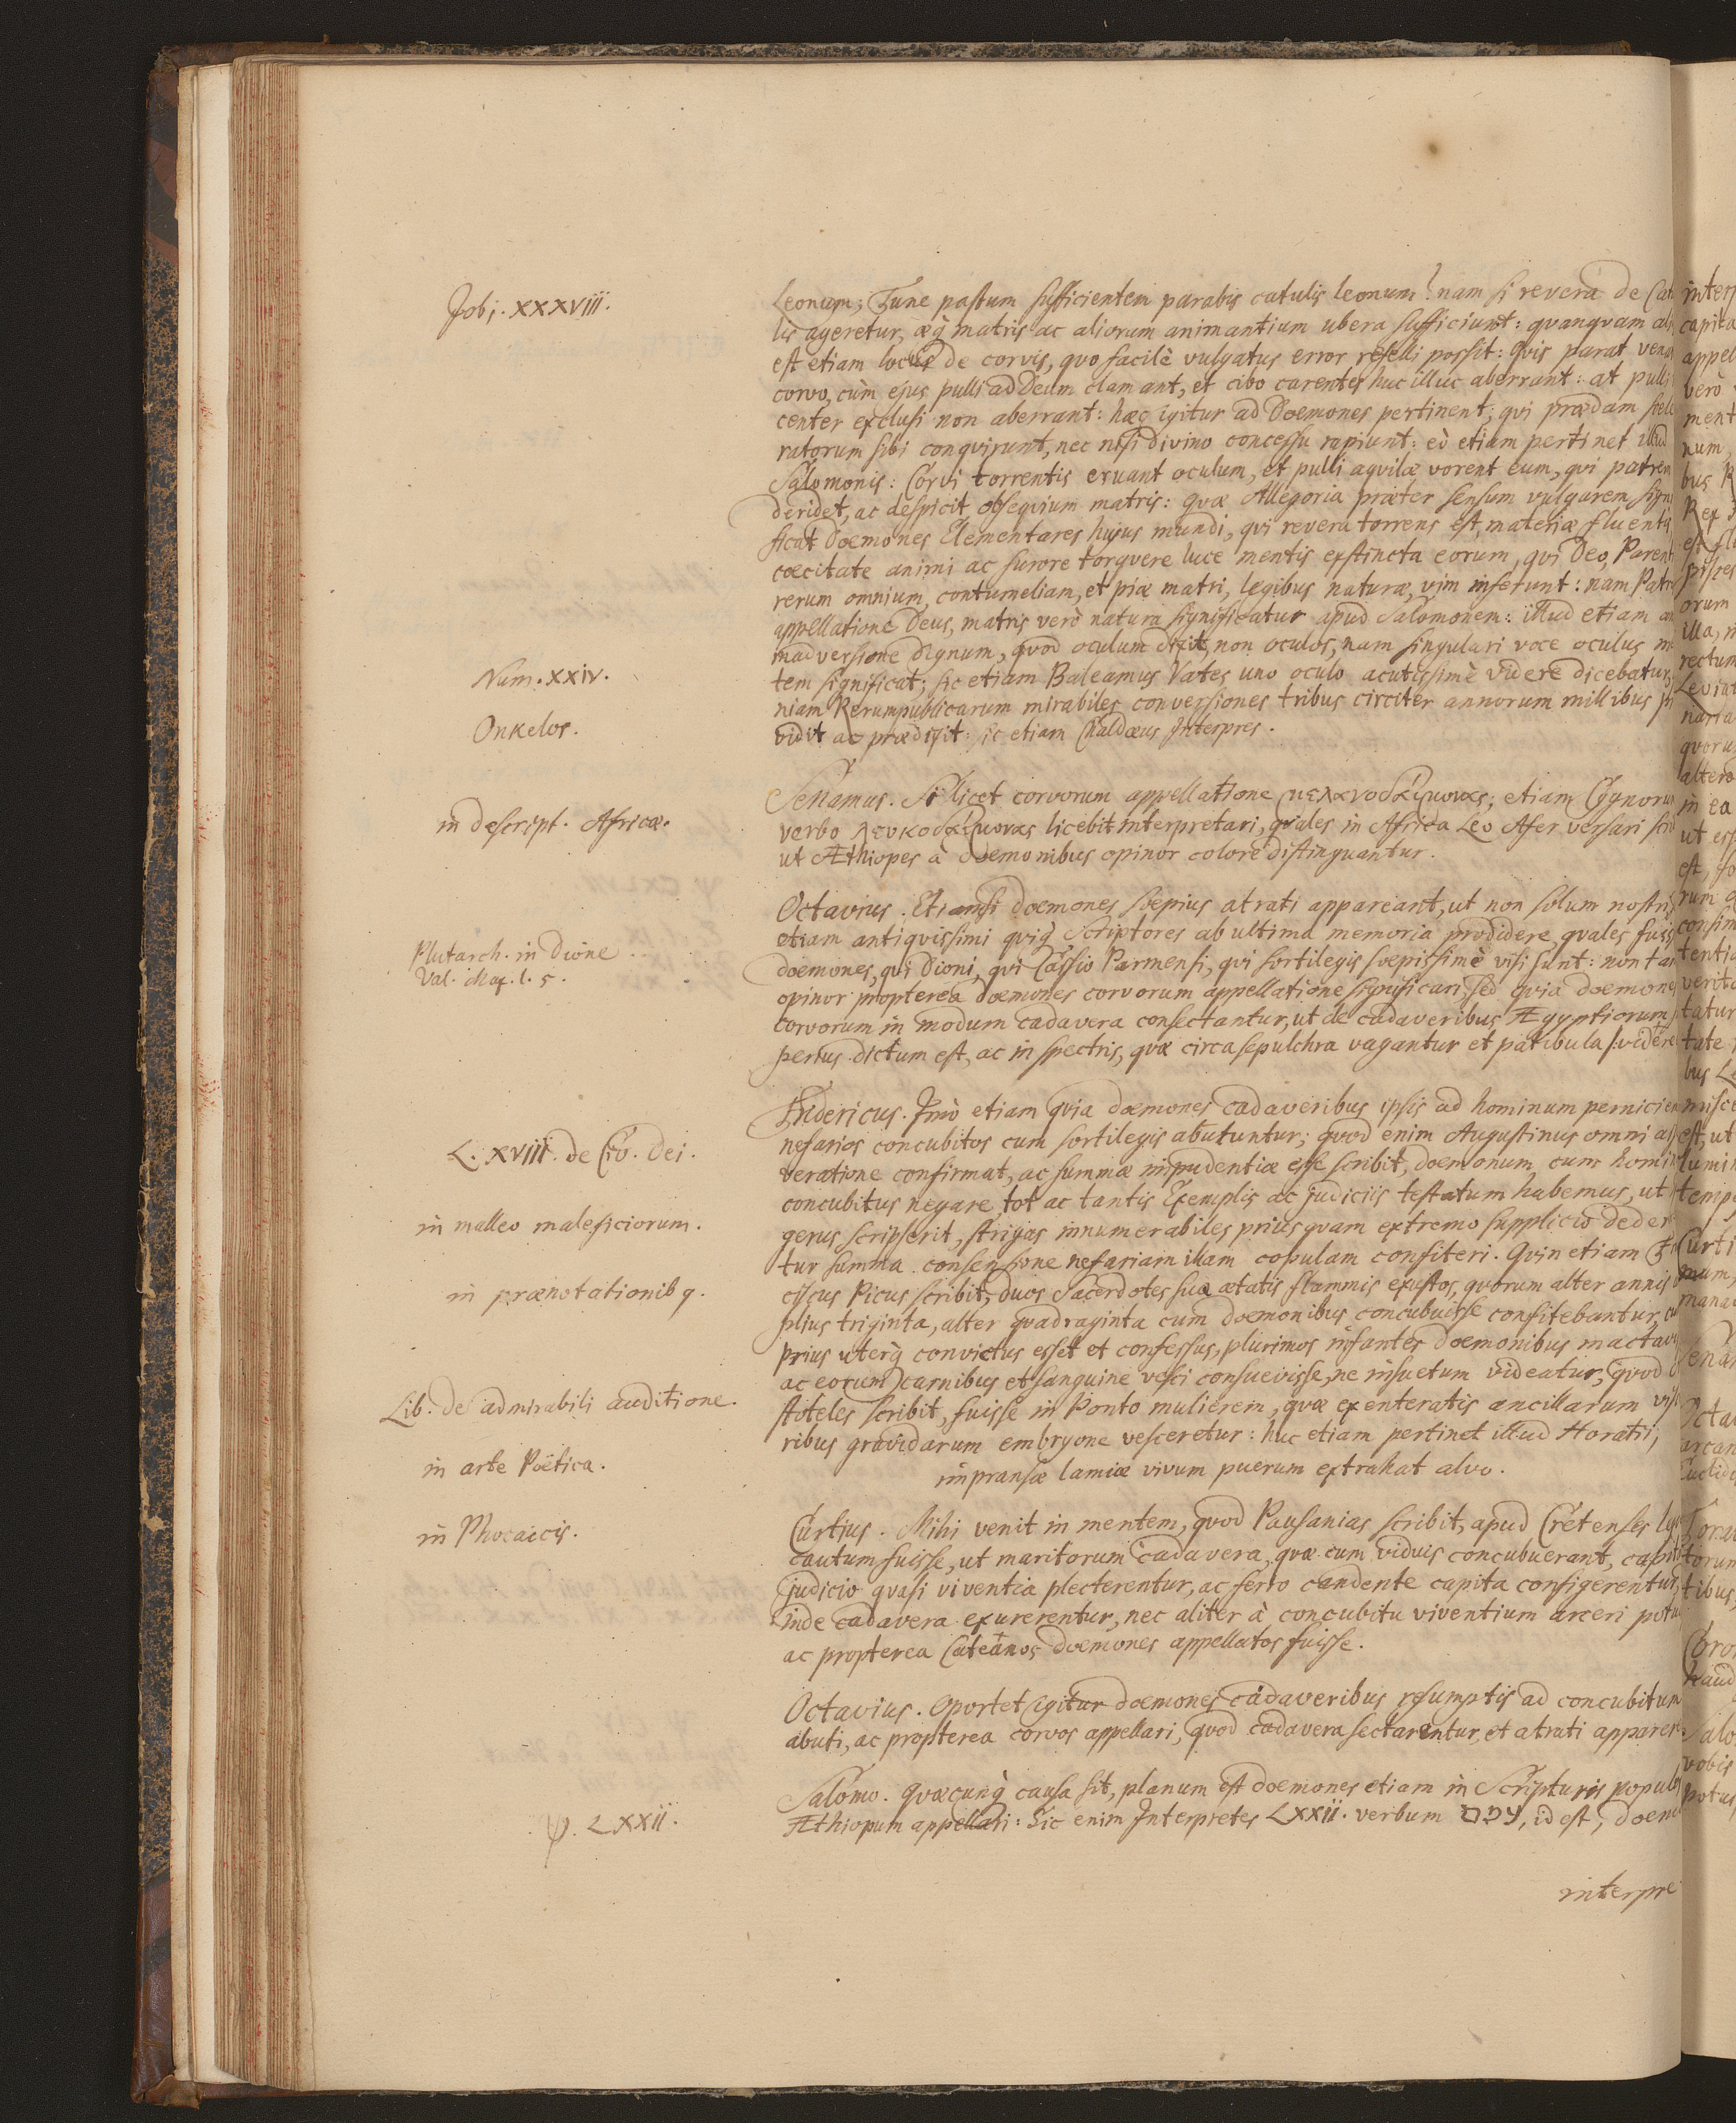 Jobi. XXXVIII.
Leonum; Tune pastum sufficientem parabis catulis leonum? nam si revera de Cat
lis ageretur, æq matris ac aliorum animantium ubera sufficiunt: quanquam ali
est etiam locus de corvis, quo facilè vulgatus error refelli possit: Quis parat vena
corvo, cùm ejus pulli ad Deum clamant, et cibo carentes huc illuc aberrant: at pulli
center exclusi non aberrant: hæc igitur ad Dœmones pertinent, qui prædam scele
ratorum sibi conqvirunt, nec nisi divino concessu rapiunt: eò etiam pertinet illud
Salomonis: Corvi torrentis eruant oculum, et pulli aquilæ vorent eum, qui patrem
deridet, ac despicit obsequium matris: quæ Allegoria præter sensum vulgarem signi
ficat Dœmones Elementares hujus mundi, qui revera torrens est, materiæ fluentis
cœcitate animi ac furore torqvere luce mentis exstincta eorum, qui Deo, Parent
rerum omnium, contumeliam, et piæ matri, legibus naturæ, vim inferunt: nam Patris
appellatione Deus, matris verò natura significatur apud Salomonem: illud etiam an
madversione dignum, quod oculum dixit, non oculos, nam singulari voce oculus m
Num. XXIV.
tem significat; sic etiam Baleamus Vates uno oculo acutissimè videre dicebatur,
niam Rerumpublicarum mirabiles conversiones tribus circiter annorum millibus
Onkelos.
vidit ac prædixit: sic etiam Chaldæus Interpres.
Senamus. Si licet corvorum appellatione μελανοδαίμονας; etiam Cygnorum
in descript. Africæ.
verbo λευκοδαίμονας licebit interpretari, quales in Africa Leo Afer versari scri
ut Æthiopes à dœmonibus opinor colore distinguantur.
Octavius. Etiamsi dœmones sœpius atrati appareant, ut non solum nostri
etiam antiquissimi quiq Scriptores ab ultima memoria prodidere, quales fuis
Plutarch. in Dione
dœmones, qui Dioni, qui Cassio Parmensi, qui sortilegis sœpissimè visi sunt: non tam
Val. Max. l. 5.
opinor propterea dœmones corvorum appellatione significari, sed quia dœmones
corvorum in modum cadavera consectantur, ut de cadaveribus Ægyptiorum
perius dictum est, ac in spectris, quæ circa sepulchra vagantur et patibula, videre
Fridericus. Imò etiam quia dœmones cadaveribus ipsis ad hominum perniciem
nefarios concubitos cum sortilegis abutuntur; quod enim Augustinus omni as
L. XVIII. de Civ. Dei.
veratione confirmat, ac summæ impudentiæ esse scribit, dœmonum cum homin
concubitus negare, tot ac tantis Exemplis ac judiciis testatum habemus, ut
in malleo maleficiorum.
gerus scripserit, strigas innumerabiles priusquam extremo supplicio deder
tur summa consensione nefariam illam copulam confiteri. Quin etiam Fr
in prænotationibq.
ciscus Picus scribit, duos Sacerdotes suæ ætatis flammis exustos, quorum alter annis
plius triginta, alter quadraginta cum dœmonibus concubuisse confitebantur, cu
prius uterq convictus esset et confessus, plurimos infantes dœmonibus mactav
ac eorum carnibus et sanguine vesci consuevisse, ne insuetum videatur, quod
Lib. de admirabili auditione.
stoteles scribit, fuisse in Ponto mulierem, quæ exenteratis ancillarum vis
ribus gravidarum embryone vesceretur: huc etiam pertinet illud Horatii,
in arte Poëtica.
impransæ lamiæ vivum puerum extrahat alvo.
Curtius. Mihi venit in mentem, quod Pausanias scribit, apud Cretenses
in Phocaicis.
cautum fuisse, ut maritorum cadavera, quæ cum viduis concubuerant, capit
judicio quasi viventia plecterentur, ac ferro candente capita configerentur,
inde cadavera exurerentur, nec aliter à concubitu viventium arceri potu
ac propterea Cateanos dœmones appellatos fuisse.
Octavius. Oportet igitur dœmones cadaveribus resumptis ad concubitum
abuti, ac propterea corvos appellari, quod cadavera sectarentur, et atrati apparer
Salomo. Quæcunq causa sit, planum est dœmones etiam in Scripturis popul
ψ. LXXII.
Æthiopum appellari: Sic enim Interpretes LXXII. verbum עם, id est, dœm
interpre